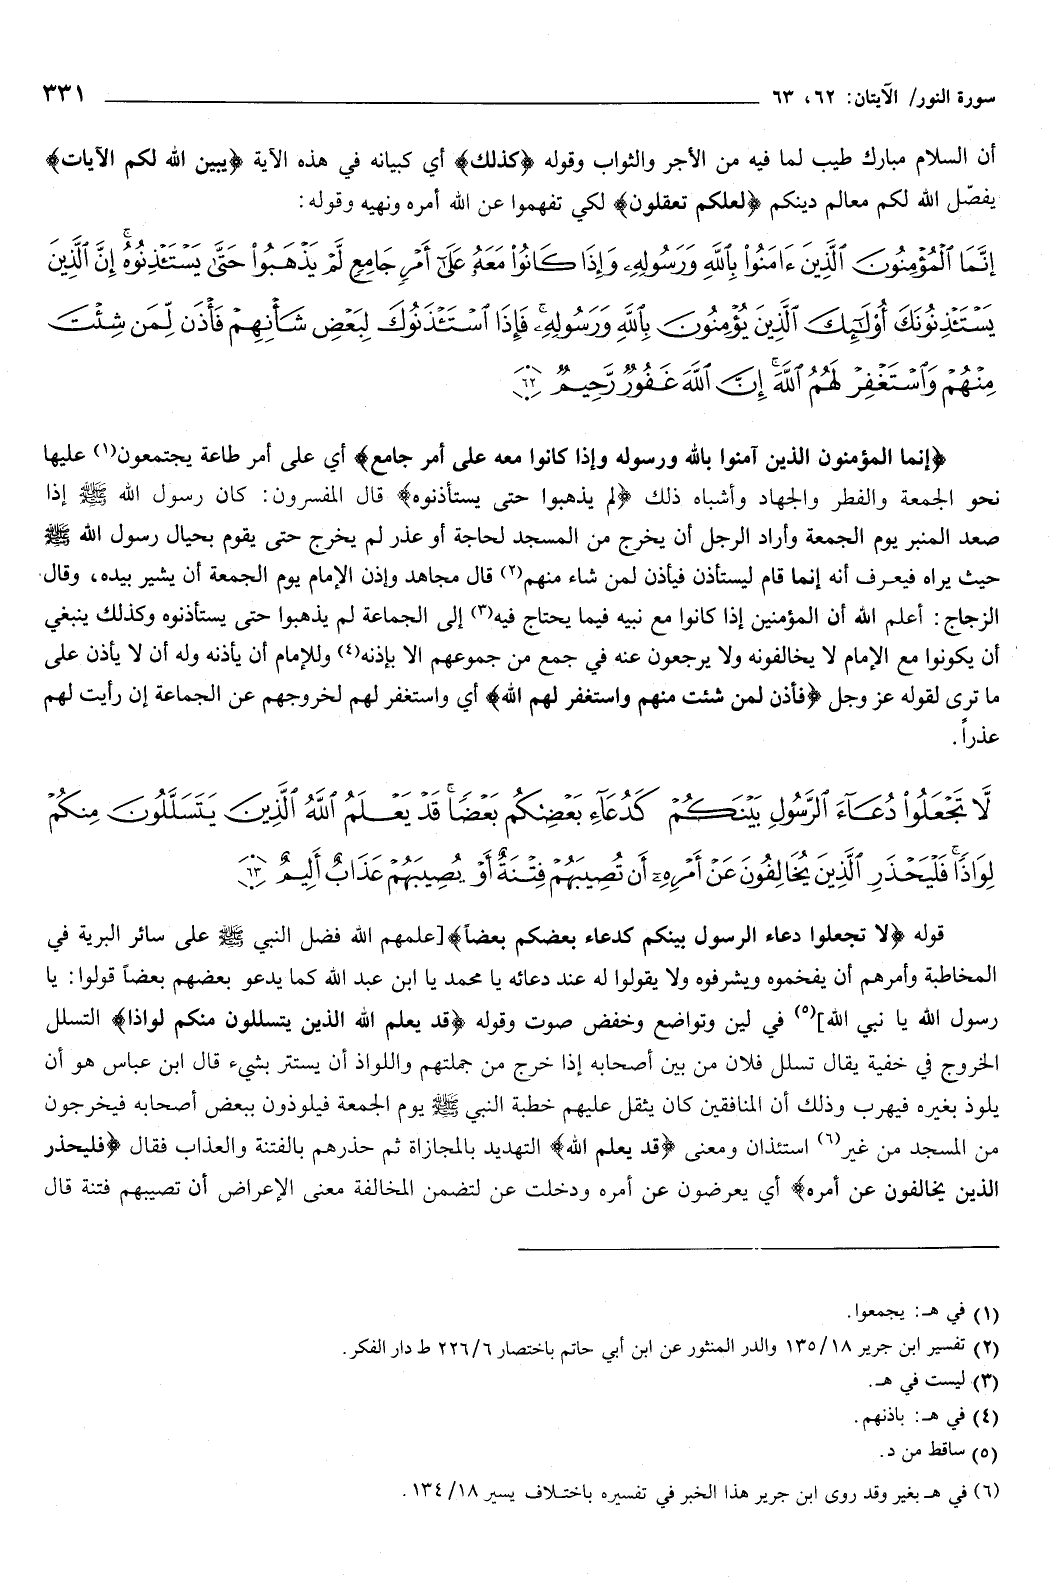 سورة النور/ الآيتان: ٦٢، ٦٣ ٣٣١
أن السلام مبارك طيب لما فيه من الأجر والثواب وقوله ﴿كذلك﴾ أي كبيانه في هذه الآية ﴿يبين الله لكم الآيات﴾
يفصّل الله لكم معالم دينكم ﴿لعلكم تعقلون﴾ لكي تفهموا عن الله أمره ونهيه وقوله:
إِنَّمَا ٱلْمُؤْمِنُونَ ٱلَّذِينَ ءَامَنُوا۟ بِٱللَّهِ وَرَسُولِهِۦ وَإِذَا كَانُوا۟ مَعَهُۥ عَلَىٰٓ أَمْرٍ جَامِعٍ لَّمْ يَذْهَبُوا۟ حَتَّىٰ يَسْتَـْٔذِنُوهُ ۚ إِنَّ ٱلَّذِينَ
يَسْتَـْٔذِنُونَكَ أُو۟لَـٰٓئِكَ ٱلَّذِينَ يُؤْمِنُونَ بِٱللَّهِ وَرَسُولِهِۦ ۚ فَإِذَا ٱسْتَـْٔذَنُوكَ لِبَعْضِ شَأْنِهِمْ فَأْذَن لِّمَن شِئْتَ
مِنْهُمْ وَٱسْتَغْفِرْ لَهُمُ ٱللَّهَ ۚ إِنَّ ٱللَّهَ غَفُورٌ رَّحِيمٌ ٦٢
﴿إنما المؤمنون الذين آمنوا بالله ورسوله وإذا كانوا معه على أمر جامع﴾ أي على أمر طاعة يجتمعون(١) عليها
نحو الجمعة والفطر والجهاد وأشباه ذلك ﴿لم يذهبوا حتى يستأذنوه﴾ قال المفسرون: كان رسول الله ﷺ إذا
صعد المنبر يوم الجمعة وأراد الرجل أن يخرج من المسجد لحاجة أو عذر لم يخرج حتى يقوم بحيال رسول الله ﷺ
حيث يراه فيعرف أنه إنما قام ليستأذن فيأذن لمن شاء منهم(٢) قال مجاهد وإذن الإمام يوم الجمعة أن يشير بيده، وقال
الزجاج: أعلم الله أن المؤمنين إذا كانوا مع نبيه فيما يحتاج فيه(٣) إلى الجماعة لم يذهبوا حتى يستأذنوه وكذلك ينبغي
أن يكونوا مع الإمام لا يخالفونه ولا يرجعون عنه في جمع من جموعهم الا بإذنه(٤) وللإمام أن يأذنه وله أن لا يأذن على
ما ترى لقوله عز وجل ﴿فأذن لمن شئت منهم واستغفر لهم الله﴾ أي واستغفر لهم لخروجهم عن الجماعة إن رأيت لهم
عذراً.
لَّا تَجْعَلُوا۟ دُعَآءَ ٱلرَّسُولِ بَيْنَكُمْ كَدُعَآءِ بَعْضِكُم بَعْضًا ۚ قَدْ يَعْلَمُ ٱللَّهُ ٱلَّذِينَ يَتَسَلَّلُونَ مِنكُمْ
لِوَاذًا ۚ فَلْيَحْذَرِ ٱلَّذِينَ يُخَالِفُونَ عَنْ أَمْرِهِۦٓ أَن تُصِيبَهُمْ فِتْنَةٌ أَوْ يُصِيبَهُمْ عَذَابٌ أَلِيمٌ ٦٣
قوله ﴿لا تجعلوا دعاء الرسول بينكم كدعاء بعضكم بعضاً﴾ [علمهم الله فضل النبي ﷺ على سائر البرية في
المخاطبة وأمرهم أن يفخموه ويشرفوه ولا يقولوا له عند دعائه يا محمد يا ابن عبد الله كما يدعو بعضهم بعضاً قولوا: يا
رسول الله يا نبي الله](٥) في لين وتواضع وخفض صوت وقوله ﴿قد يعلم الله الذين يتسللون منكم لواذا﴾ التسلل
الخروج في خفية يقال تسلل فلان من بين أصحابه إذا خرج من جملتهم واللواذ أن يستتر بشيء قال ابن عباس هو أن
يلوذ بغيره فيهرب وذلك أن المنافقين كان يثقل عليهم خطبة النبي ﷺ يوم الجمعة فيلوذون ببعض أصحابه فيخرجون
من المسجد من غير(٦) استئذان ومعنى ﴿قد يعلم الله﴾ التهديد بالمجازاة ثم حذرهم بالفتنة والعذاب فقال ﴿فليحذر
الذين يخالفون عن أمره﴾ أي يعرضون عن أمره ودخلت عن لتضمن المخالفة معنى الإعراض أن تصيبهم فتنة قال
(١) في هـ: يجمعوا.
(٢) تفسير ابن جرير ١٣٥/١٨ والدر المنثور عن ابن أبي حاتم باختصار ٢٢٦/٦ ط دار الفكر.
(٣) ليست في هـ.
(٤) في هـ: باذنهم.
(٥) ساقط من د.
(٦) في هـ بغير وقد روى ابن جرير هذا الخبر في تفسيره باختلاف يسير ١٣٤/١٨.